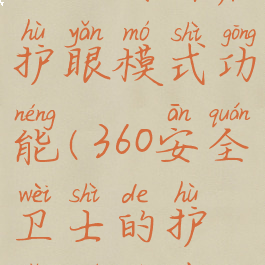 hù yǎn mó shì gōng
护眼模式功
néng ān quán
能(360安全
wèi shì de hù
卫士的护